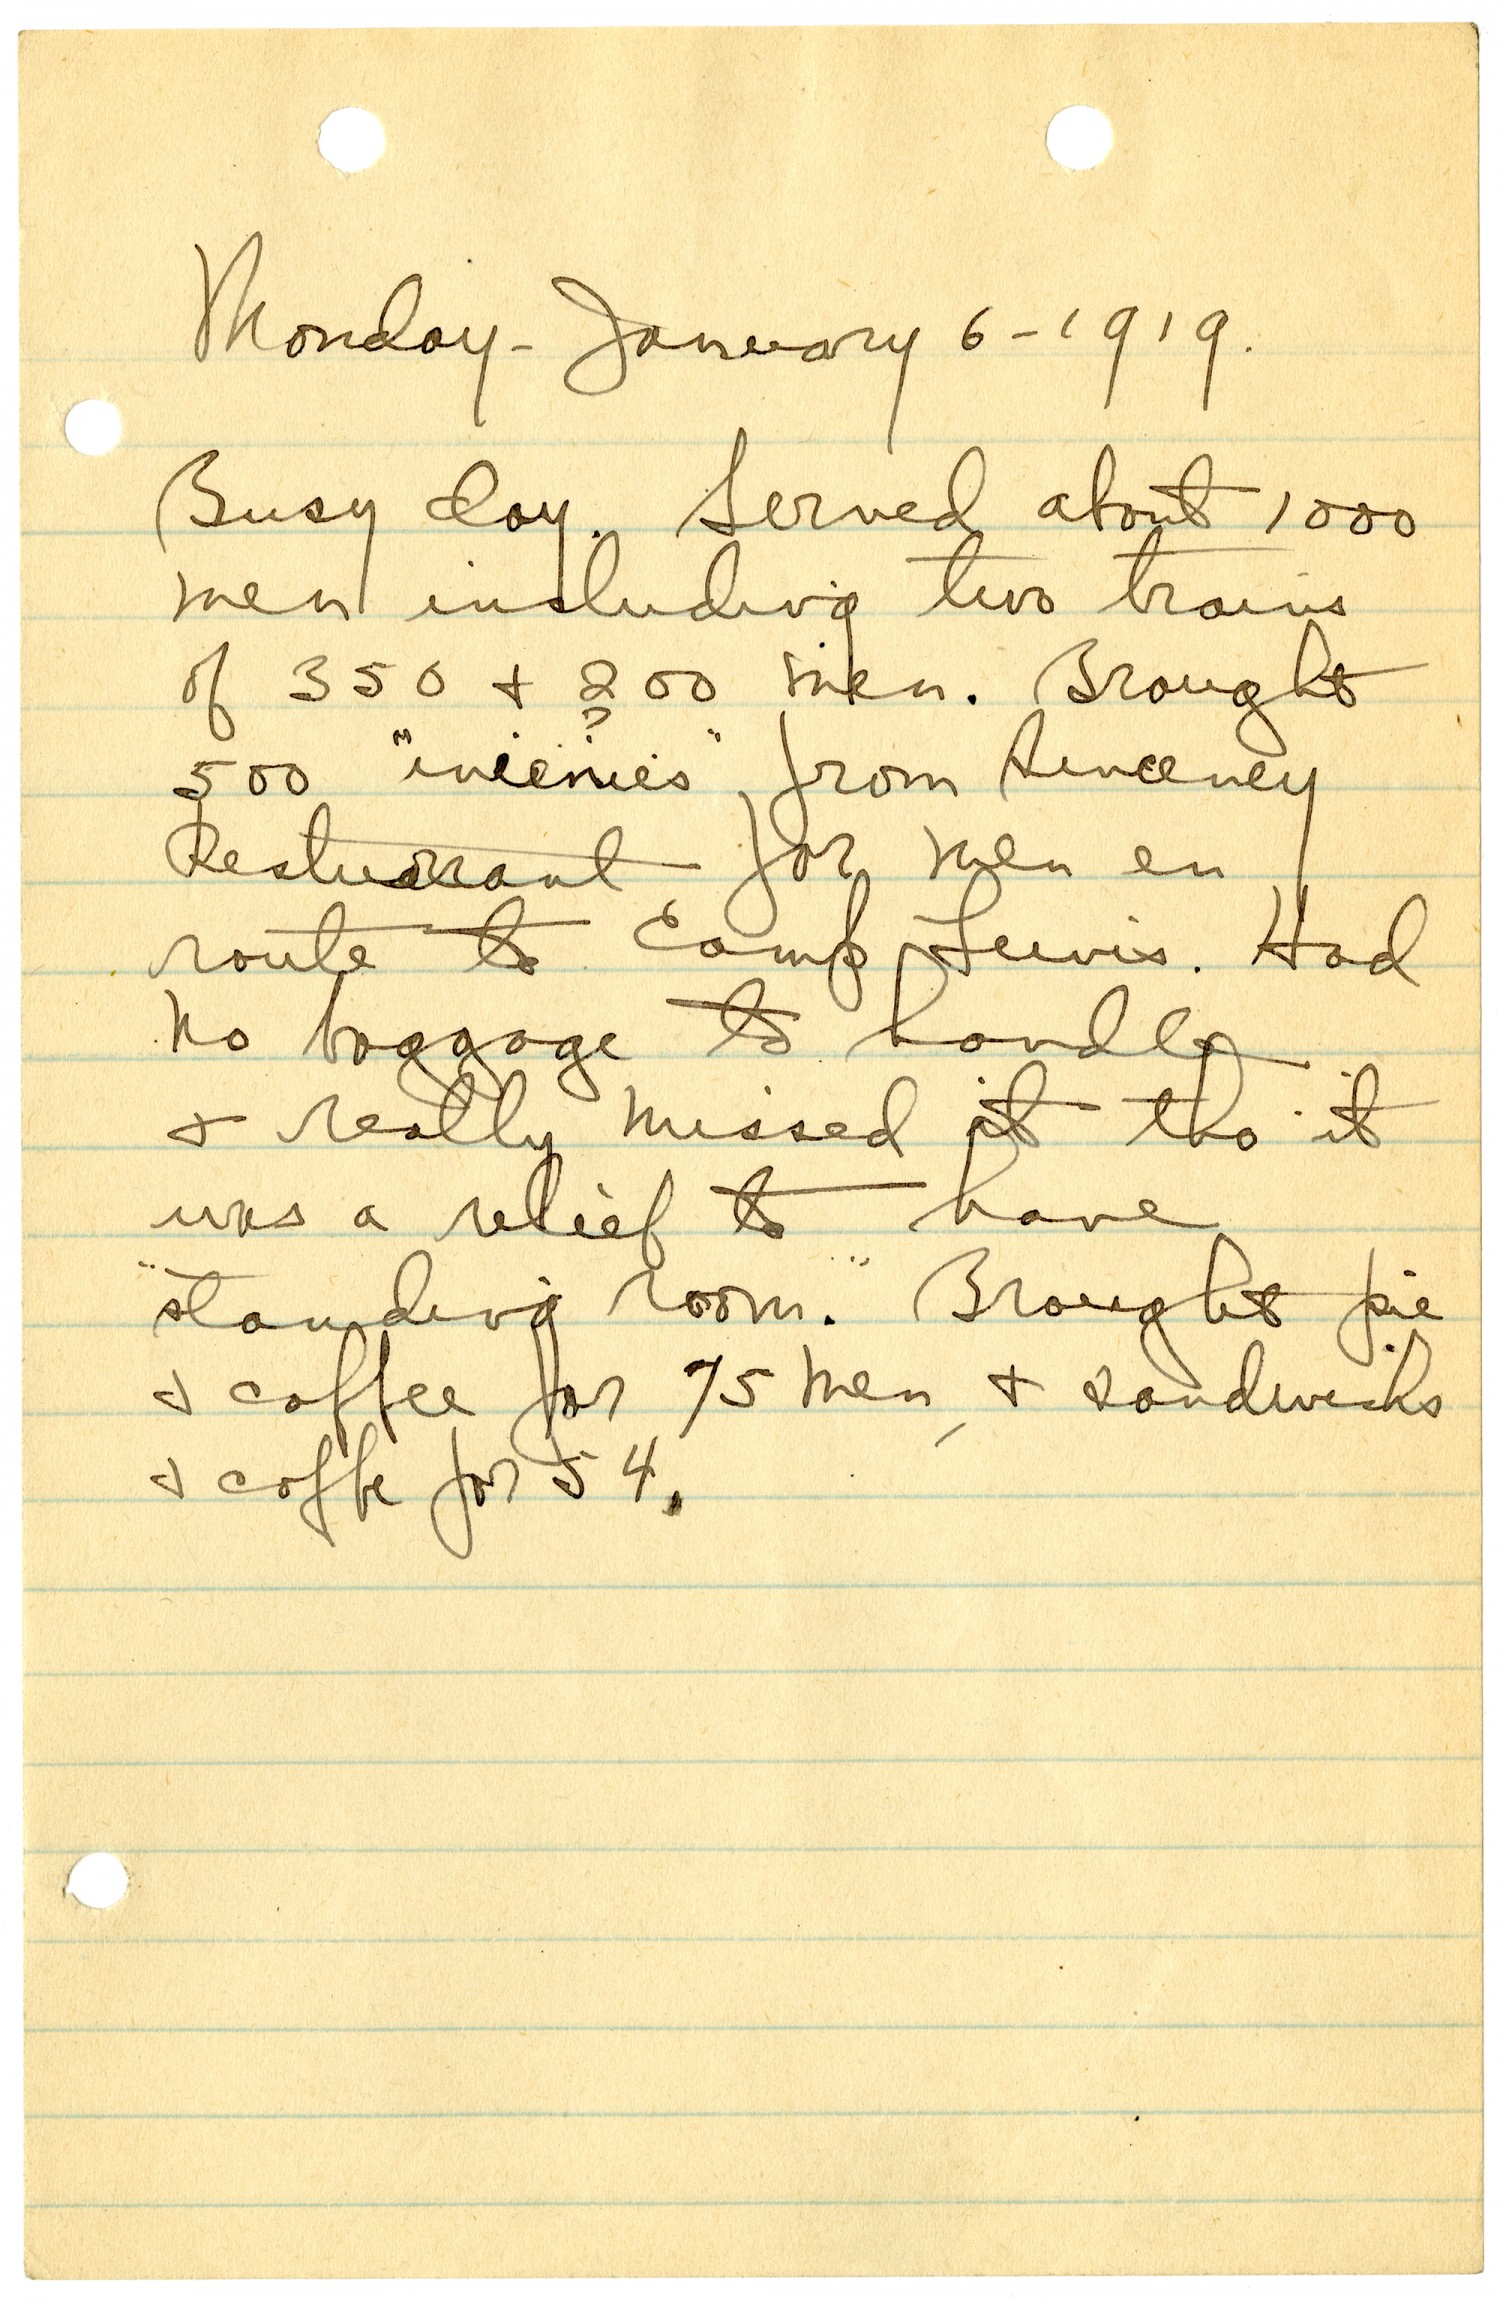 Monday - January 6 - 1919.
Busy day. Served about 1000
men including two trains
of 350 + 200 men. Brought
?
500 "wienies" from
Resturrant for men en
route to Camp Lewis. Had
no baggage to handle
+ really missed it tho it
was a relief to have
"standing room." Brought pie
+ coffee for 75 men, + sandwichs
+ coffe for 54.